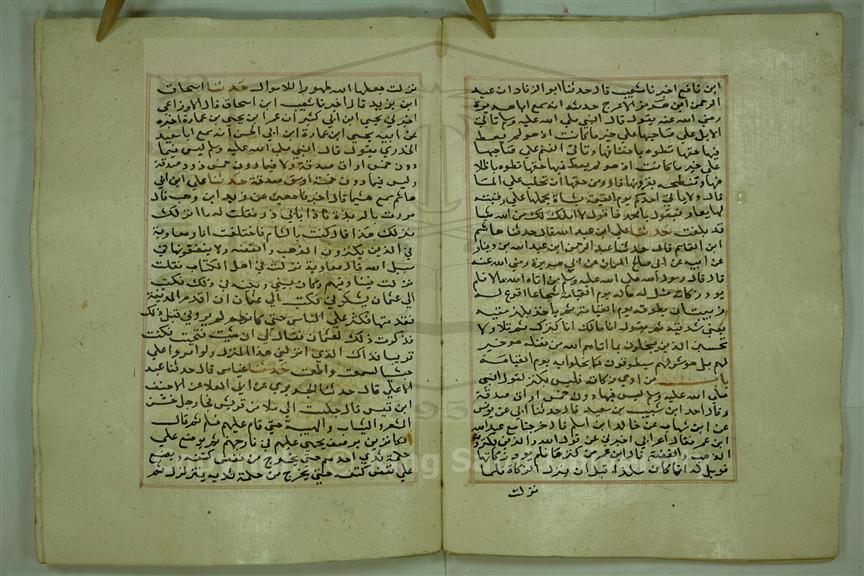 ابن نافع اخبرنا شعيب قال حدثنا ابو الزناد ان عبد
الرحمن ابن هرمز الاعرج حدثه انه سمع ابا هريرة
رضي الله عنه يقول قال النبي صلي الله عليه وسلم تاتي
الابل علي صاحبها علي خير ما كانت اذ هو لم يعط
فيها حقها تطوه باخفافها وتاتي الغنم علي صاحبها
علي خير ما كانت اذ هو لم يعط فيها حقها تطوه باظلا
فها وتنطحه بقرونها قال ومن حقها ان تحلب علي الما
قال ولا ياتي احدكم يوم القيمة بشاة يحملها علي رقبته
لها يعار فيقول يا محمد فاقول لا املك لك من الله شيا
قد بلغت حدثنا علي ابن عبد الله قال حدثنا هاشم
ابن القاسم قال حدثنا عبد الرحمن ابن عبد الله بن دينار
عن ابيه عن ابي صالح السمان عن ابي هريرة رضي الله عنه
قال قال رسول الله صلي الله عليه وسلم من اتاه الله مالا فلم
يود زكاته مثل له ماله يوم القيامة شجاعا اقرع له
زبيبتان يطوقه يوم القيامة ثم ياخذ بلهزمتيه
يعني شدقيه ثم يقول انا مالك انا كنزك ثم تلا ولا
تحسبن الذين يبخلون بما اتاهم الله من فضله هو خير
لهم بل هو شر لهم سيطوقون ما بخلوا به يوم القيامة
باب من ادي زكاته فليس بكنز لقول النبي
صلي الله عليه وسلم ليس فيما دون خمس اواق صدقة
وقال احمد ابن شبيب بن سعيد قال حدثنا ابي عن يونس
عن ابن شهاب عن خالد ابن اسلم قال خرجنا مع عبد الله
ابن عمر فقال اعرابي اخبرني عن قول الله والذين يكنزون
الذهب والفضة قال ابن عمر من كنزها فلم يود زكاتها
فويل له انما كان هذا قبل ان تنزل الزكاة فلما
نزلت
نزلت جعلها الله طهورا للاموال حدثنا اسحاق
ابن يزيد قال اخبرنا شعيب ابن اسحاق قال الاوزاعي
اخبرني يحيي ابن ابي كثير ان عمرا بن يحيي بن عمارة اخبره
عن ابيه يحيي ابن عمارة ابن ابي الحسن انه سمع ابا سعيد
الخدري يقول قال النبي صلي الله عليه وسلم ليس فيما
دون خمس اواق صدقة ولا فيما دون خمس ذود صدقة
وليس فيما دون خمسة اوسق صدقة حدثنا علي ابن ابي
هاشم سمع هشيما قال اخبرنا حصين عن زيد ابن وهب قال
مررت بالربذة فاذا بابي ذر فقلت له ما انزلك
منزلك هذا قال كنت بالشام فاختلفت انا ومعاوية
في الذين يكنزون الذهب والفضة ولا ينفقونها في
سبيل الله قال معاوية نزلت في اهل الكتاب فقلت
نزلت فينا وفيهم وكان بيني وبينه في ذلك فكتب
الي عثمان يشكوني فكتب الي عثمان ان اقدم المدينة
فقدمتها فكثر علي الناس حتي كانهم لم يروني قبل ذلك
فذكرت ذلك لعثمان فقال لي ان شيت تنحيت فكنت
قريبا فذاك الذي انزلني هذا المنزل ولو امروا علي
حبشيا لسمعت واطعت حدثنا عياش قال حدثنا عبد
الاعلي قال حدثنا الجريري عن ابي العلا عن الاحنف
ابن قيس قال جلست الي ملا من قريش فجا رجل خشن
الشعر والثياب والهيئة حتي قام عليهم فسلم ثم قال
بشر الكانزين برضف يحمي عليهم في نار جهنم ثم يوضع علي
حلمة ثدي احدهم حتي يخرج من نغض كتفه ويوضع
علي نغض كتفه حتي يخرج من حلمة ثديه يتزلزل ثم